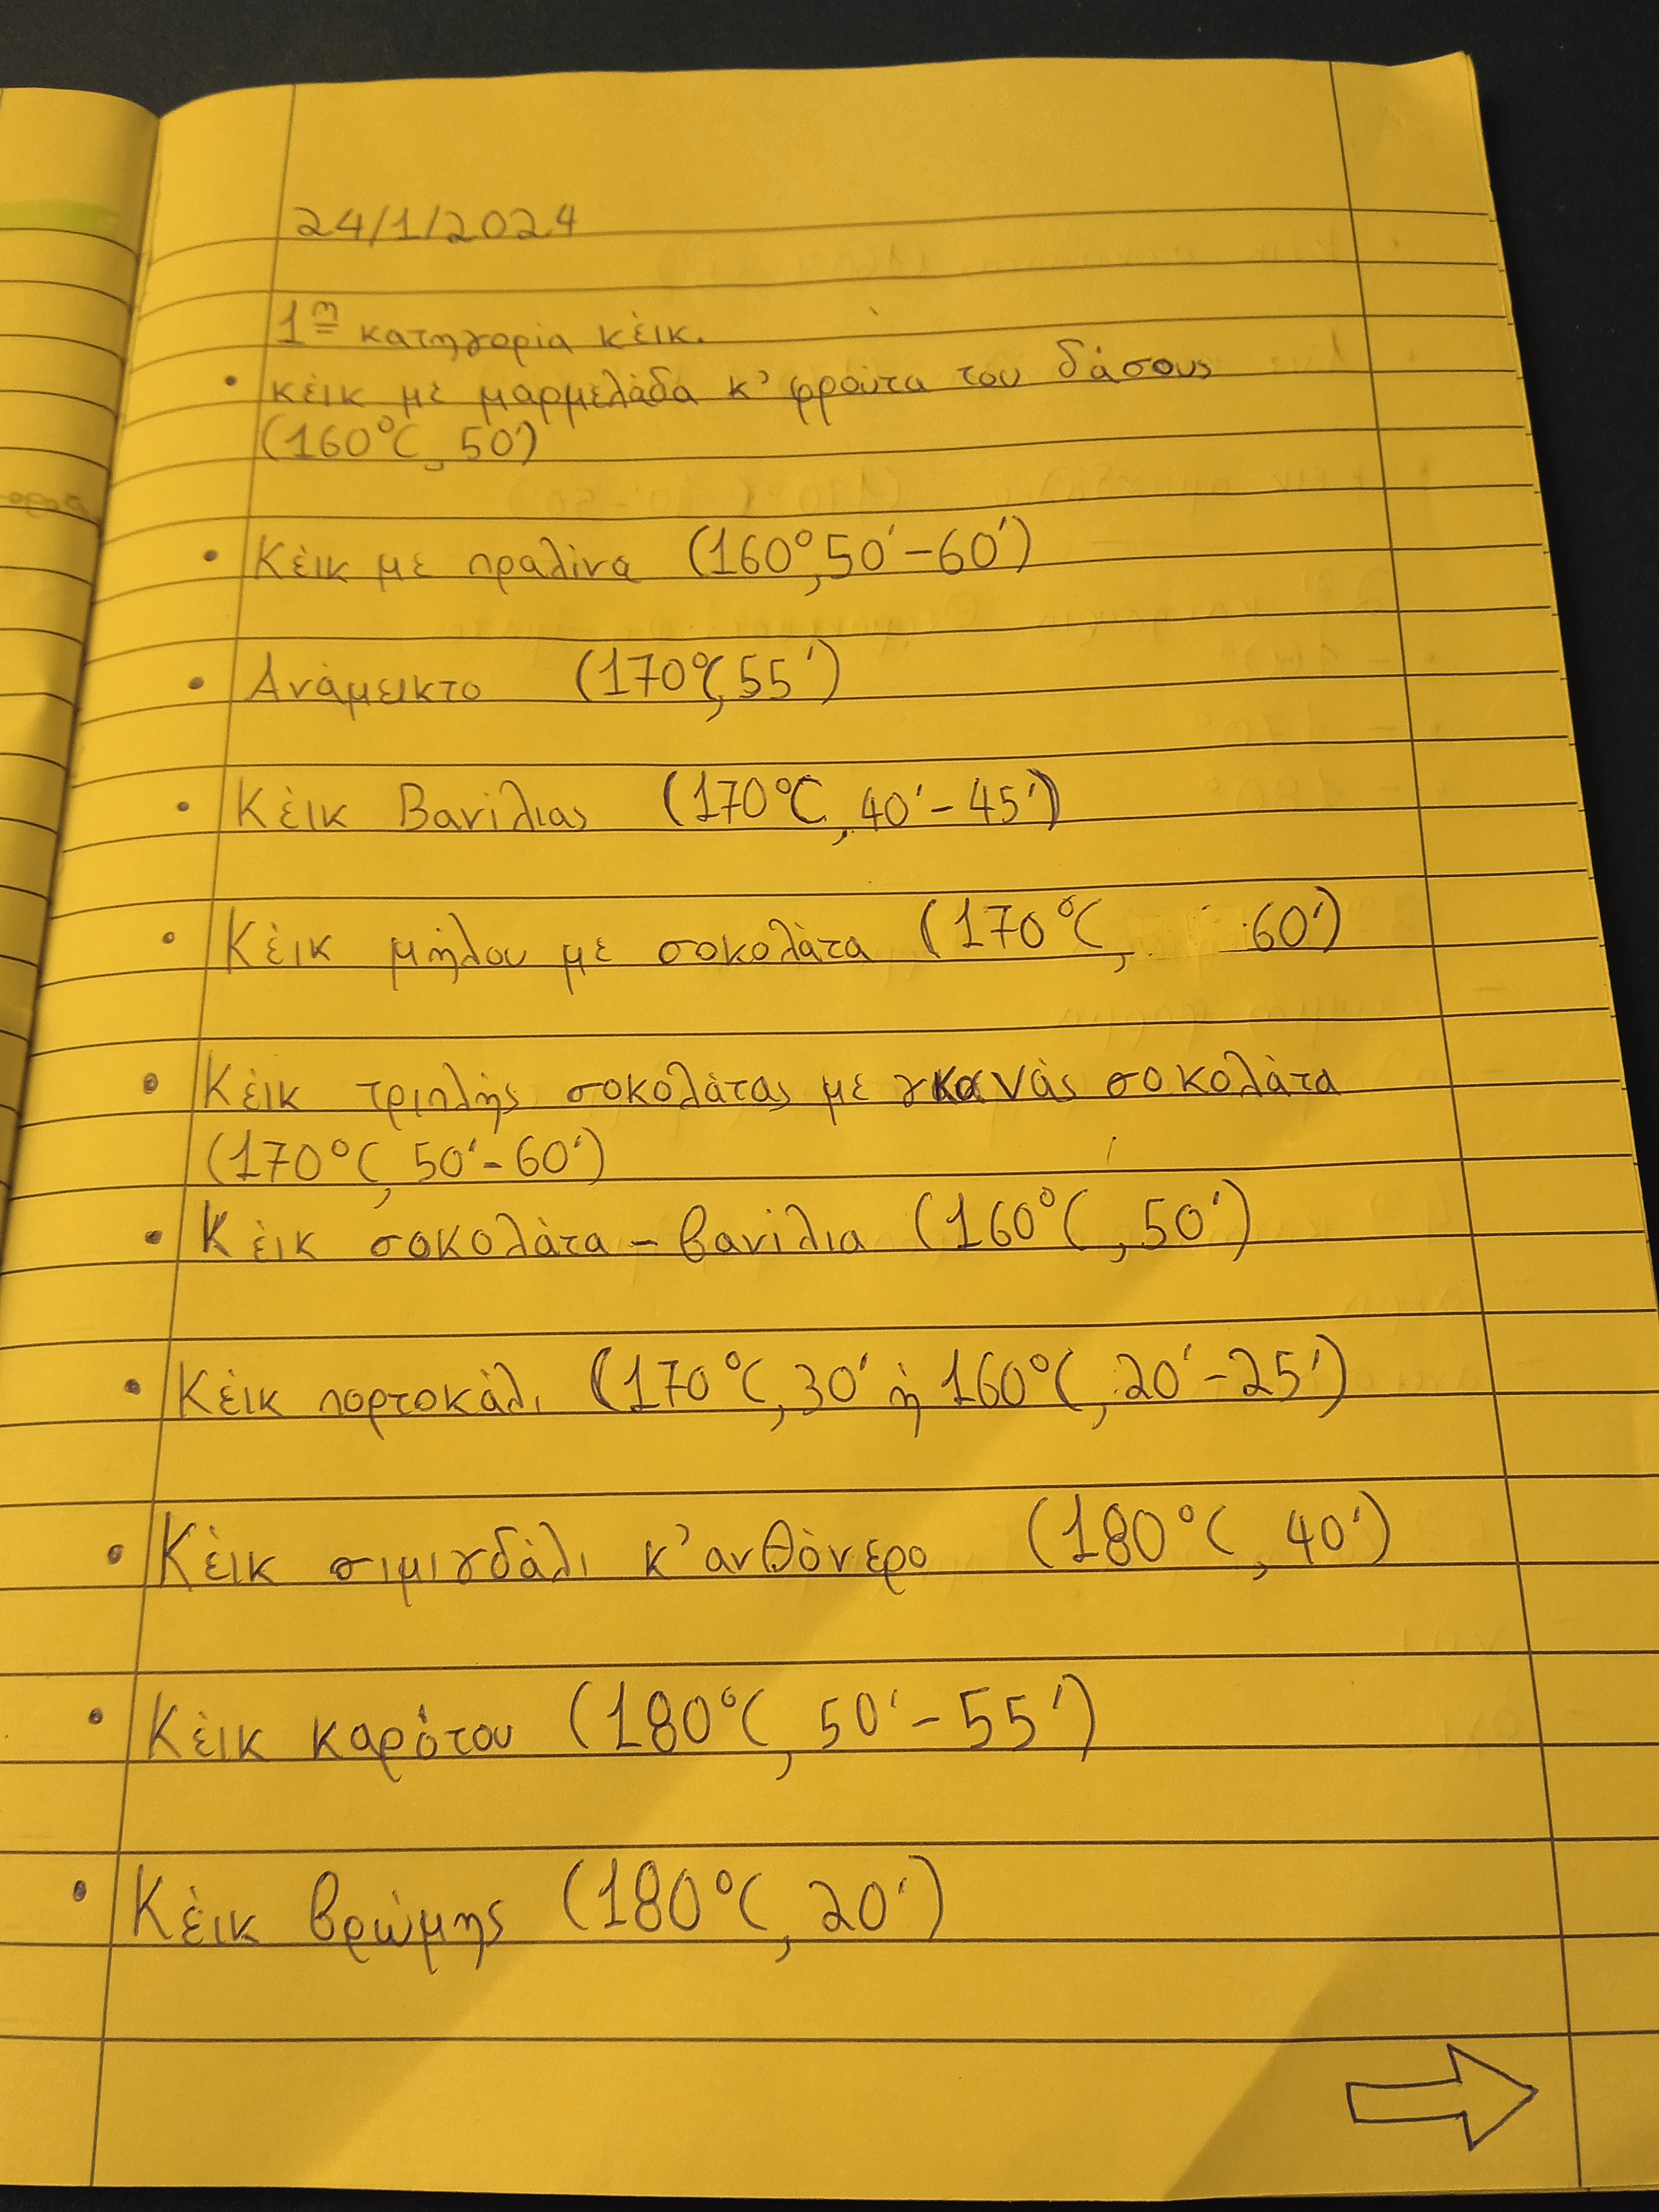 24/1/2024
1η κατηγορία κέικ.
• κέικ με μαρμελάδα κ' φρούτα του δάσους
(160°C, 50')
• Κέικ με πραλίνα (160°, 50'-60')
• Ανάμεικτο (170°C, 55')
• Κέικ Βανίλιας (170°C, 40'-45')
• Κέικ μήλου με σοκολάτα (170°C, 60')
• Κέικ τριπλής σοκολάτας με γκανάς σοκολάτα
(170°C, 50'-60')
• Κέικ σοκολάτα - βανίλια (160°C, 50')
• Κέικ πορτοκάλι (170°C, 30' ή 160°C, 20'-25')
• Κέικ σιμιγδάλι κ' ανθόνερο (180°C, 40')
• Κέικ καρότου (180°C, 50'-55')
• Κέικ βρώμης (180°C, 20')